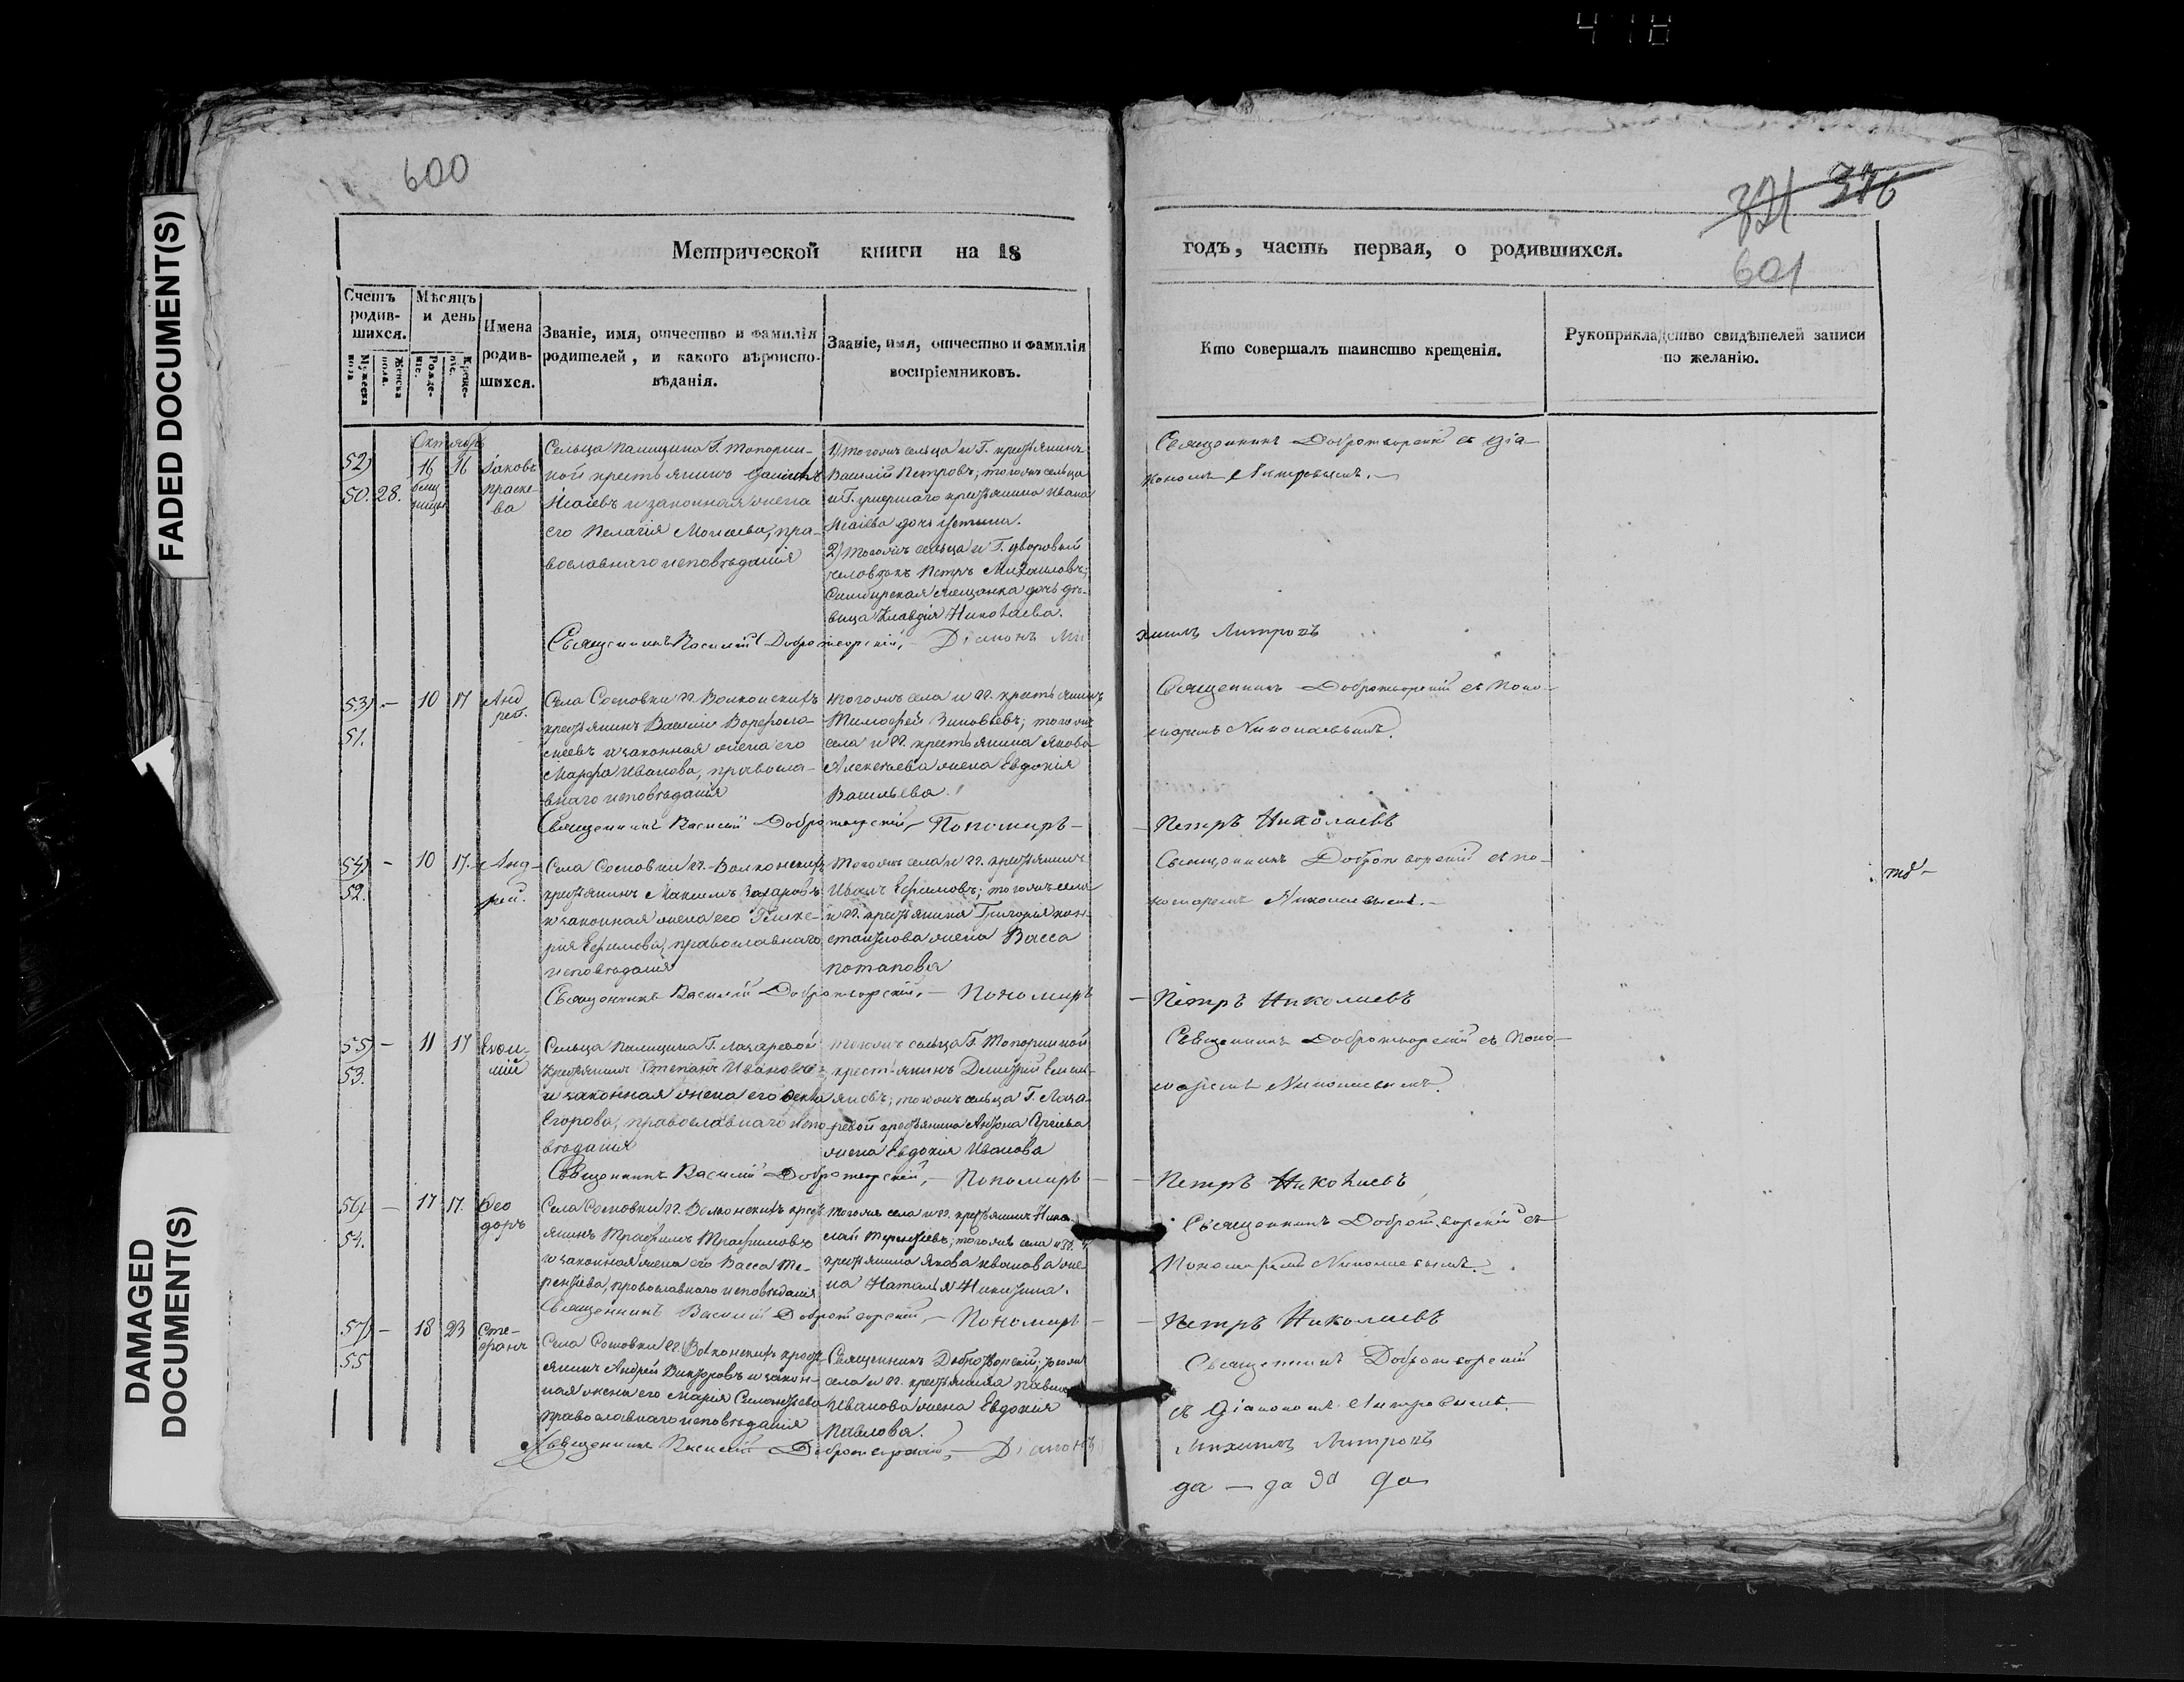 418
600
321 316
601
FADED DOCUMENT(S)
DAMAGED
DOCUMENT(S)
Метрической книги на 18
годъ, часть первая, о родившихся.
Счетъ родив-
шихся.
Мужеска пола
Женска пола.
Мѣсяцъ
и день
Рожде-
ніе.
Креще-
ніе.
Имена
родив-
шихся.
Званіе, имя, отчество и фамилія
родителей, и какого вѣроиспо-
вѣданія.
Званіе, имя, отчество и фамилія
воспріемниковъ.
Кто совершалъ таинство крещенія.
Рукоприкладство свидѣтелей записи
по желанію.
Октябрь
52)
50. 28.
16 16
Іаковъ
праске-
ва
Сельца Палицина Г. Топорни-
ной крестьянинъ
Исаіевъ и законная жена
его Пелагія Моисеева, пра-
вославнаго исповѣданія
1) тогожъ сельца и Г. крестьянинъ
Василій Петровъ; тогожъ сельца
и Г. умершаго крестьянина Ивана
Исаіева дочь Устина.
2) Тогожъ сельца и Г. дворовый
человѣкъ Петръ Михаиловъ;
Симбирская мещанка дочь дѣ-
вица Клавдія Николаева.
Священникъ Добротворскій съ діа-
кономъ
Священникъ Василій Добротворскій, — Діаконъ Ми
хаилъ
53) — 10 17
51.
Анд
рей.
Села Сосновки гг. Волконскихъ
крестьянинъ Василій Варфоло-
меевъ и законная жена его
Марфа Иванова, правосла-
внаго исповѣданія
тогожъ села и гг. крестьянинъ
Тимофей Зиновьевъ; тогожъ
села и гг. крестьянина Якова
Алексѣева жена Евдокія
Васильева.
Священникъ Добротворскій съ Поно-
маремъ Николаевымъ.
Священникъ Василій Добротворскій, — Пономарь —
— Петръ Николаевъ
54) — 10 17.
52.
Анд-
рей.
Села Сосновки гг. Волконскихъ
крестьянинъ Максимъ Захаровъ
и законная жена его Глике-
рія Ефимова, православнаго
исповѣданія
тогожъ села и гг. крестьянинъ
Иванъ Ефимовъ; тогожъ села
и гг. крестьянина Григорія кон-
стантинова жена Васса
потапова
Священникъ Добротворскій съ по-
номаремъ Николаевымъ. —
Священникъ Василій Добротворскій. — Пономарь
— Петръ Николаевъ
55) — 11 17
53.
Сельца Палицина Г. Лазаревой
крестьянинъ Степанъ Ивановъ
и законная жена его Фекла
Егорова, православнаго испо
вѣданія
тогожъ сельца Г. Топорниной
крестьянинъ Дмитрій Емель-
яновъ; тогожъ сельца Г. Лаза-
ревой крестьянина Антона
жена Евдокія Иванова
Священникъ Добротворскій съ Поно-
маремъ Николаевымъ.
Священникъ Василій Добротворскій, — Пономарь —
— Петръ Николаевъ
56) — 17 17.
54.
Фео
доръ
Села Сосновки гг. Волконскихъ крест
янинъ Трофимъ Трофимовъ
и законная жена его Васса Те-
рентьева, православнаго исповѣданія
тогожъ села и гг. крестьянинъ Нико-
лай Терентьевъ; тогожъ села и гг.
крестьянина Якова иванова же
на Наталья Никитина.
Священникъ Добротворскій съ
Пономаремъ Николаевымъ. —
Священникъ Василій Добротворскій, — Пономарь —
— Петръ Николаевъ
57) — 18 23
55
Сте-
фанъ
Села Сосновки гг. Волконскихъ крест
янинъ Андрей Викторовъ и закон-
ная жена его Марія Силантьева
православнаго исповѣданія
Священникъ Добротворскій; тогожъ
села и гг. крестьянина Павла
Иванова жена Евдокія
Павлова.
Священникъ Добротворскій
съ Діакономъ
Священникъ Василій Добротворскій, — Діаконъ
Михаилъ
да — да да да